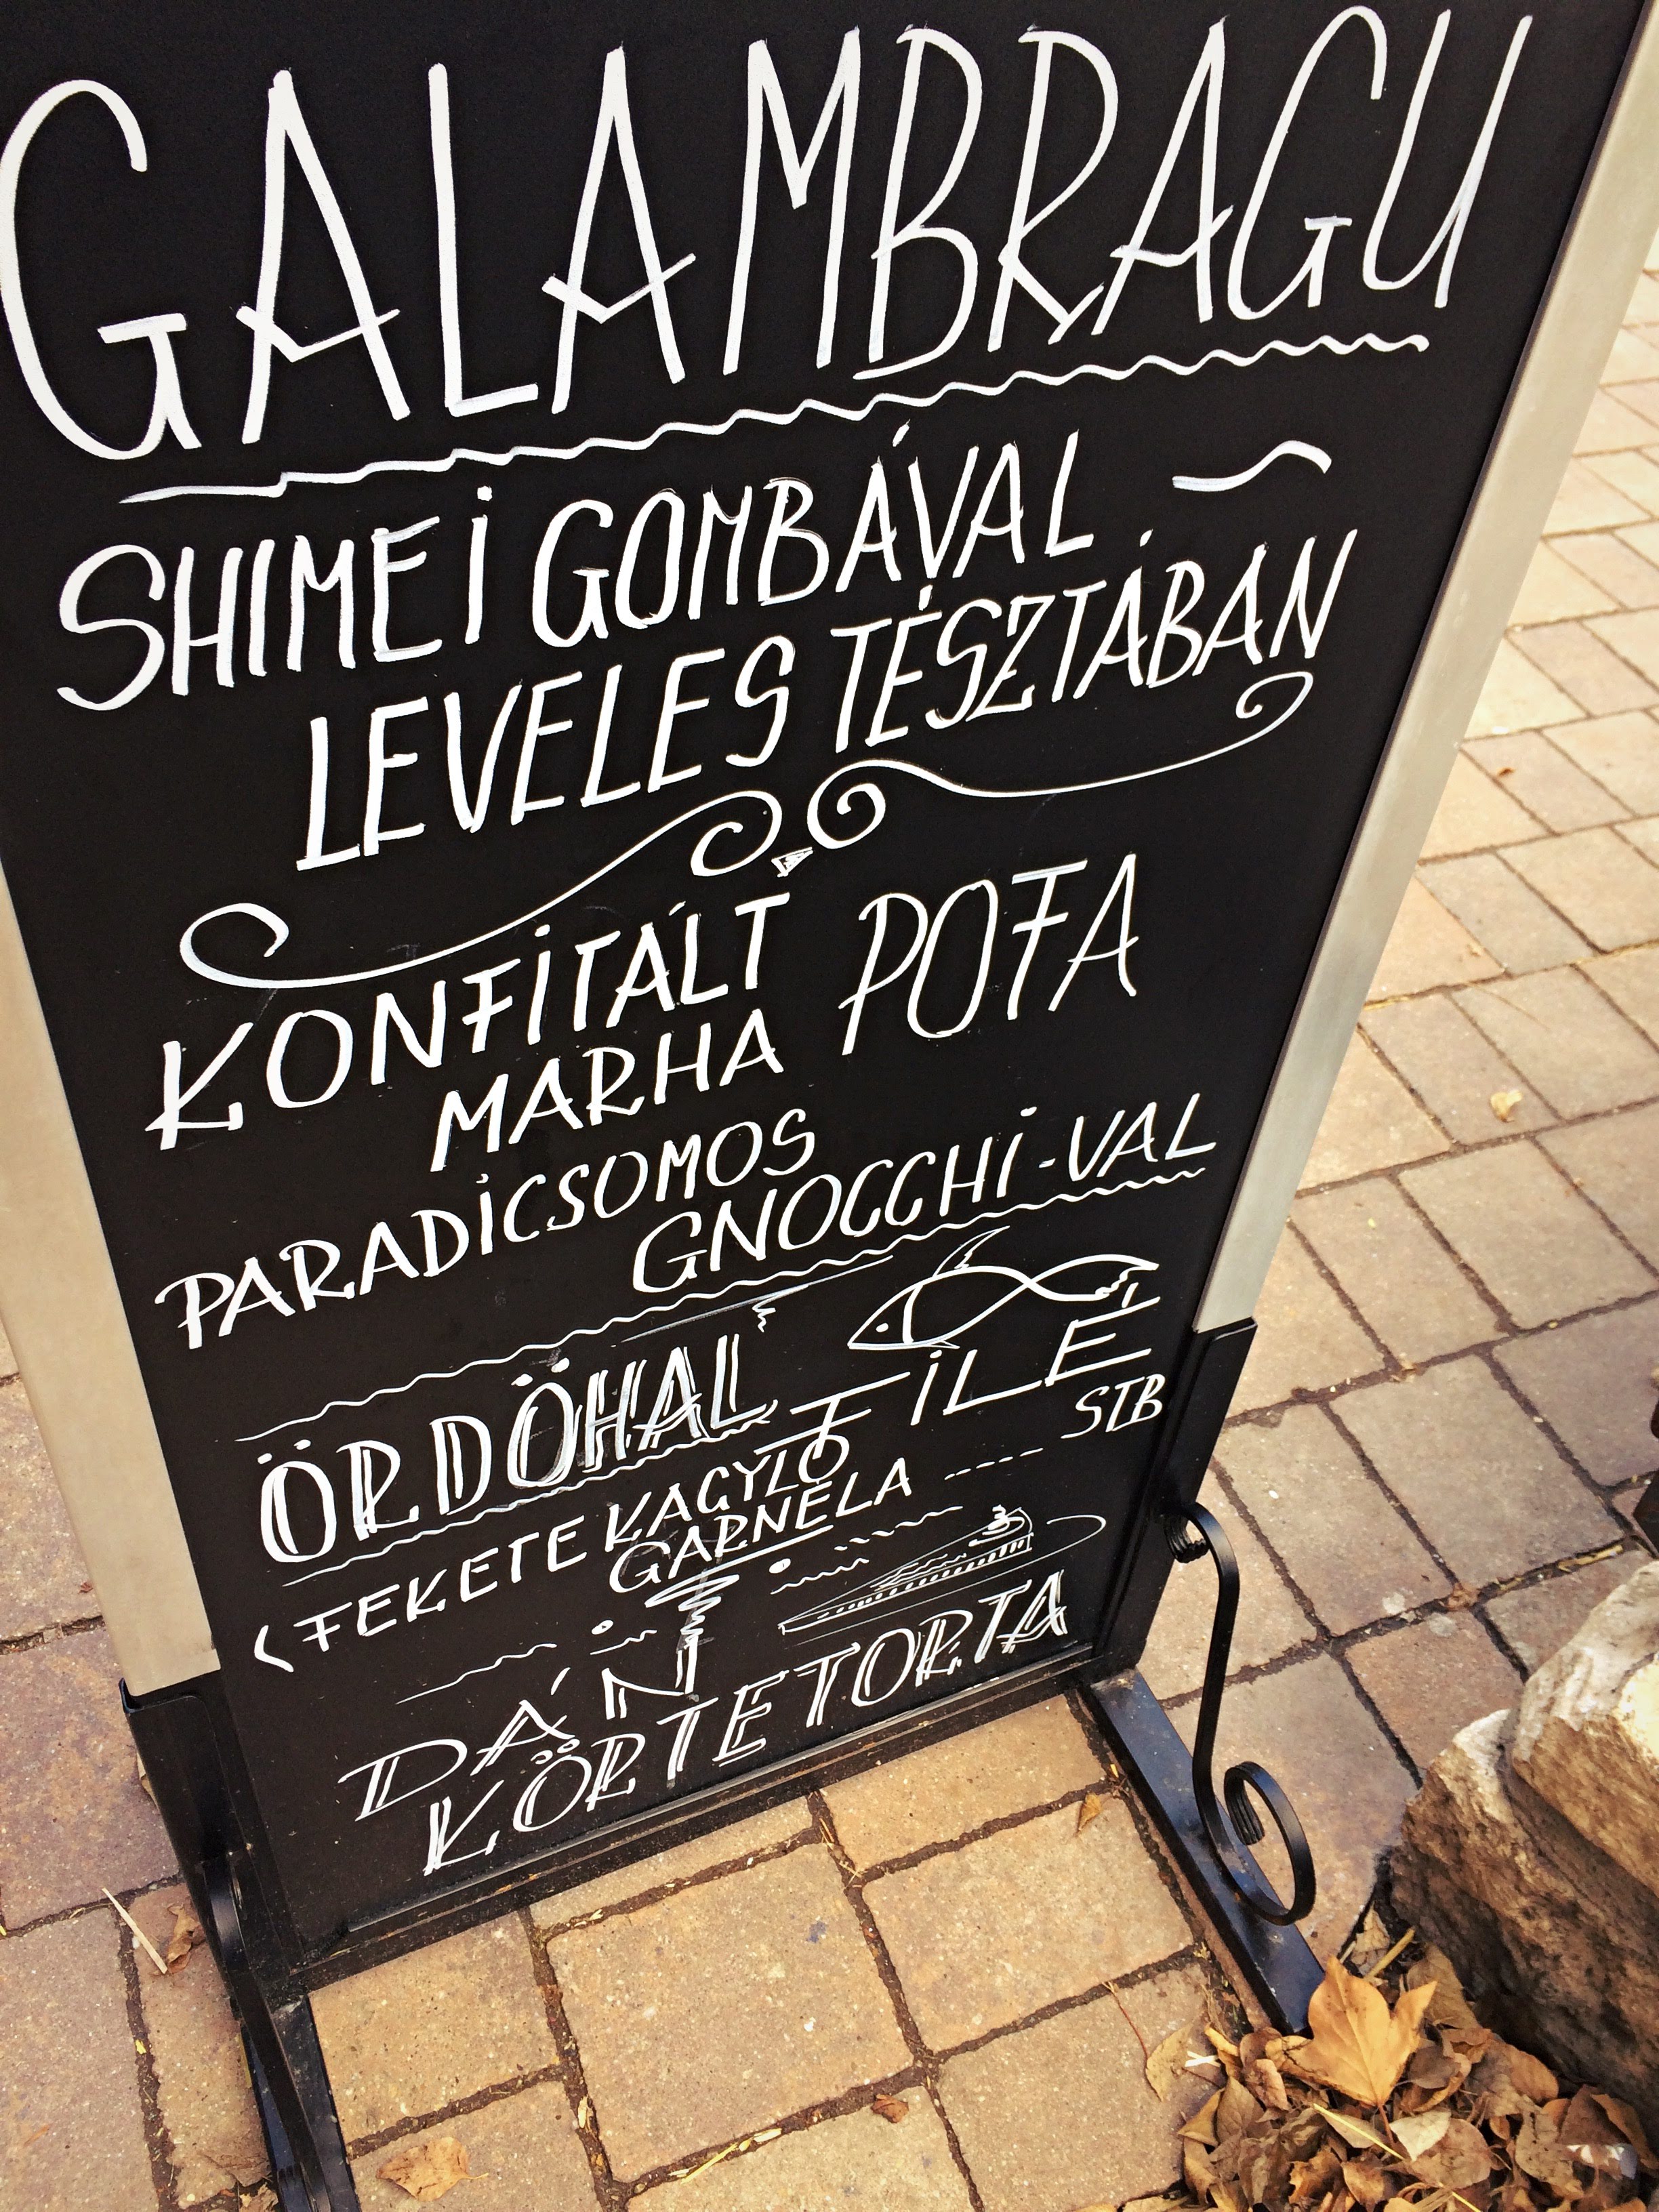 GALAMBRAGU
SHIMEI GOMBÁVAL
LEVELES TÉSZTÁBAN
KONFITÁLT
MARHA POFA
PARADICSOMOS
GNOCCHI-VAL
ÖRDÖHAL FILÉ
(FEKETE KAGYLÓ
GARNÉLA ----- STB
DÁN
KÖRTETORTA